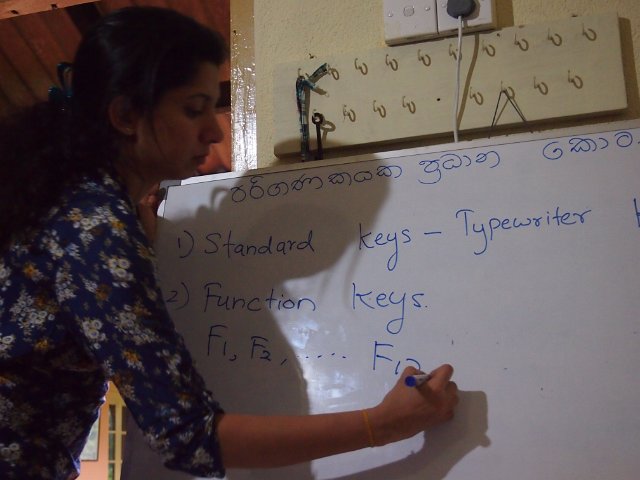 පරිගණකයක ප්‍රධාන කොට
1) Standard keys - Typewriter
2) Function keys.
F1, F2, ..... F12